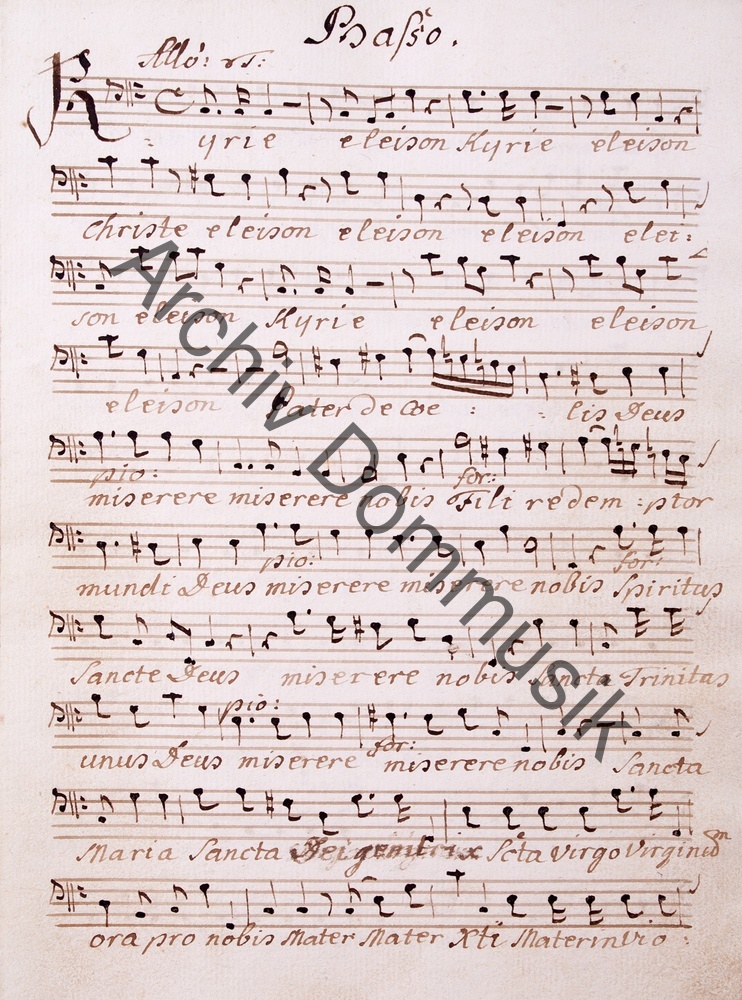 Basso.
Allo:
Kyrie eleison Kyrie eleison
Christe eleison eleison eleison elei:
son eleison Kyrie eleison eleison
eleison Pater de Coe : : lis Deus
pio: for:
miserere miserere nobis Fili redem : ptor
pio: for:
mundi Deus miserere miserere nobis Spiritus
Sancte Deus miserere nobis Sancta Trinitas
pio: for:
unus Deus miserere miserere nobis Sancta
Maria Sancta Dei genitrix Scta Virgo Virginum
ora pro nobis Mater Mater Xti Mater invio :
Archiv Dommusik